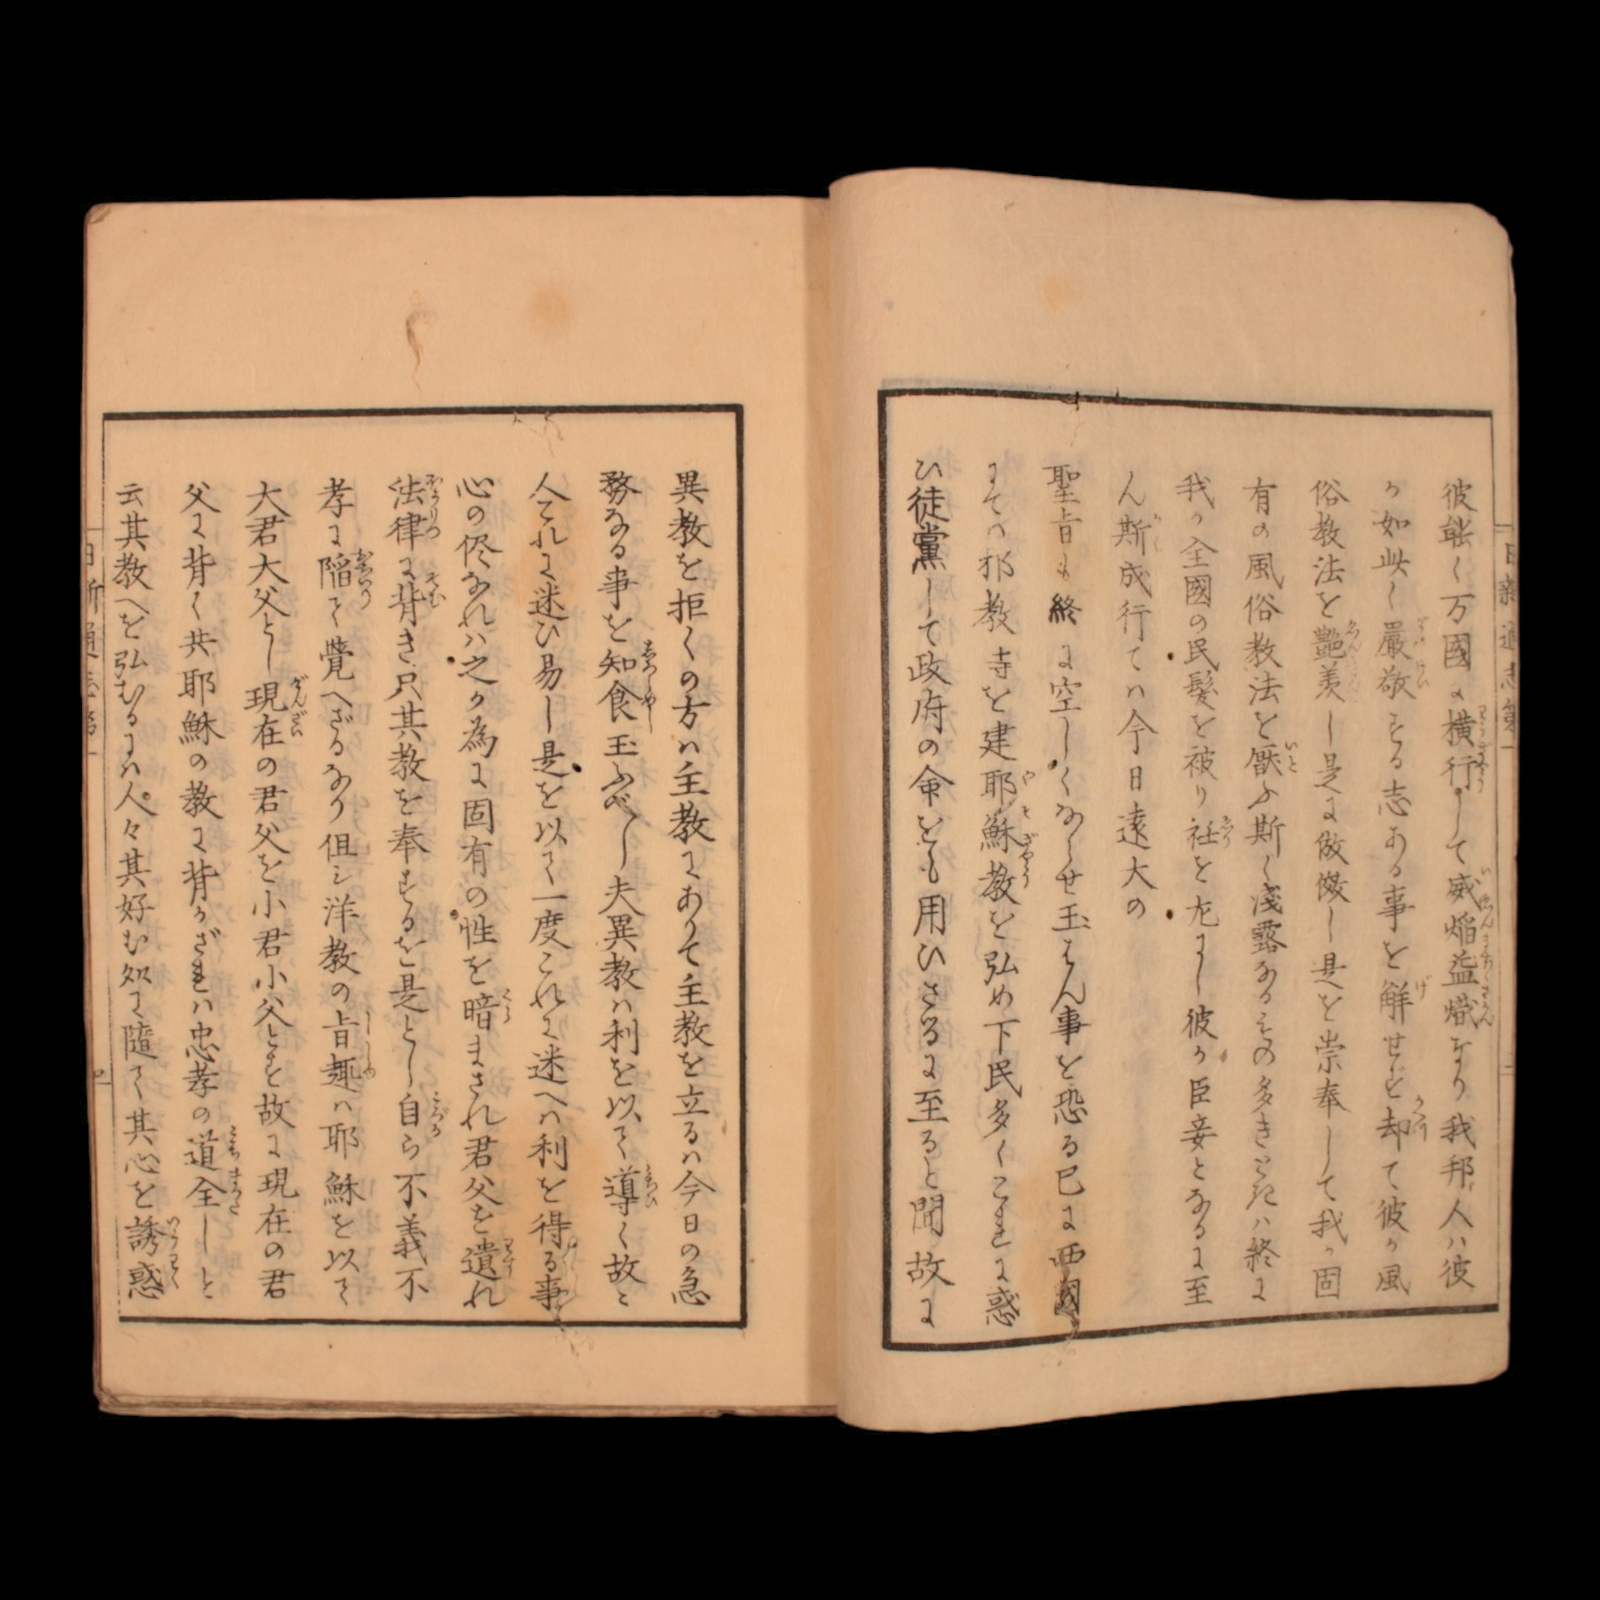 彼能く万國に横行して威焔益熾なり我邦人ハ彼
か如此く嚴敬する志ある事を解せず却て彼か風
俗教法を艶羨し是に倣傚し是を崇奉して我か固
有の風俗教法を厭ふ斯く淺露なるもの多きときハ終に
我か全國の民髪を被り衽を左にし彼か臣妾となるに至
ん斯成行てハ今日遠大の
聖旨も終に空しくならせ玉はん事を恐る已に西國
にてハ邪教寺を建耶蘇教を弘め下民多くこれに惑
ひ徒黨して政府の命をも用ひさるに至ると聞故に
異教を拒くの方ハ主教にありて主教を立るハ今日の急
務なる事を知食玉ふべし夫異教ハ利を以て導く故に
人これに迷ひ易し是を以て一度これに迷へハ利を得る事
心の侭なれハ之か為に固有の性を暗まされ君父を遺れ
法律に背き只其教を奉するを是とし自ら不義不
孝に陥て覺へざるなり但シ洋教の旨趣ハ耶蘇を以て
大君大父とし現在の君父を小君小父とす故に現在の君
父に背く共耶蘇の教に背かざれハ忠孝の道全しと
云其教へを弘むるにハ人々其好む処に隨て其心を誘惑